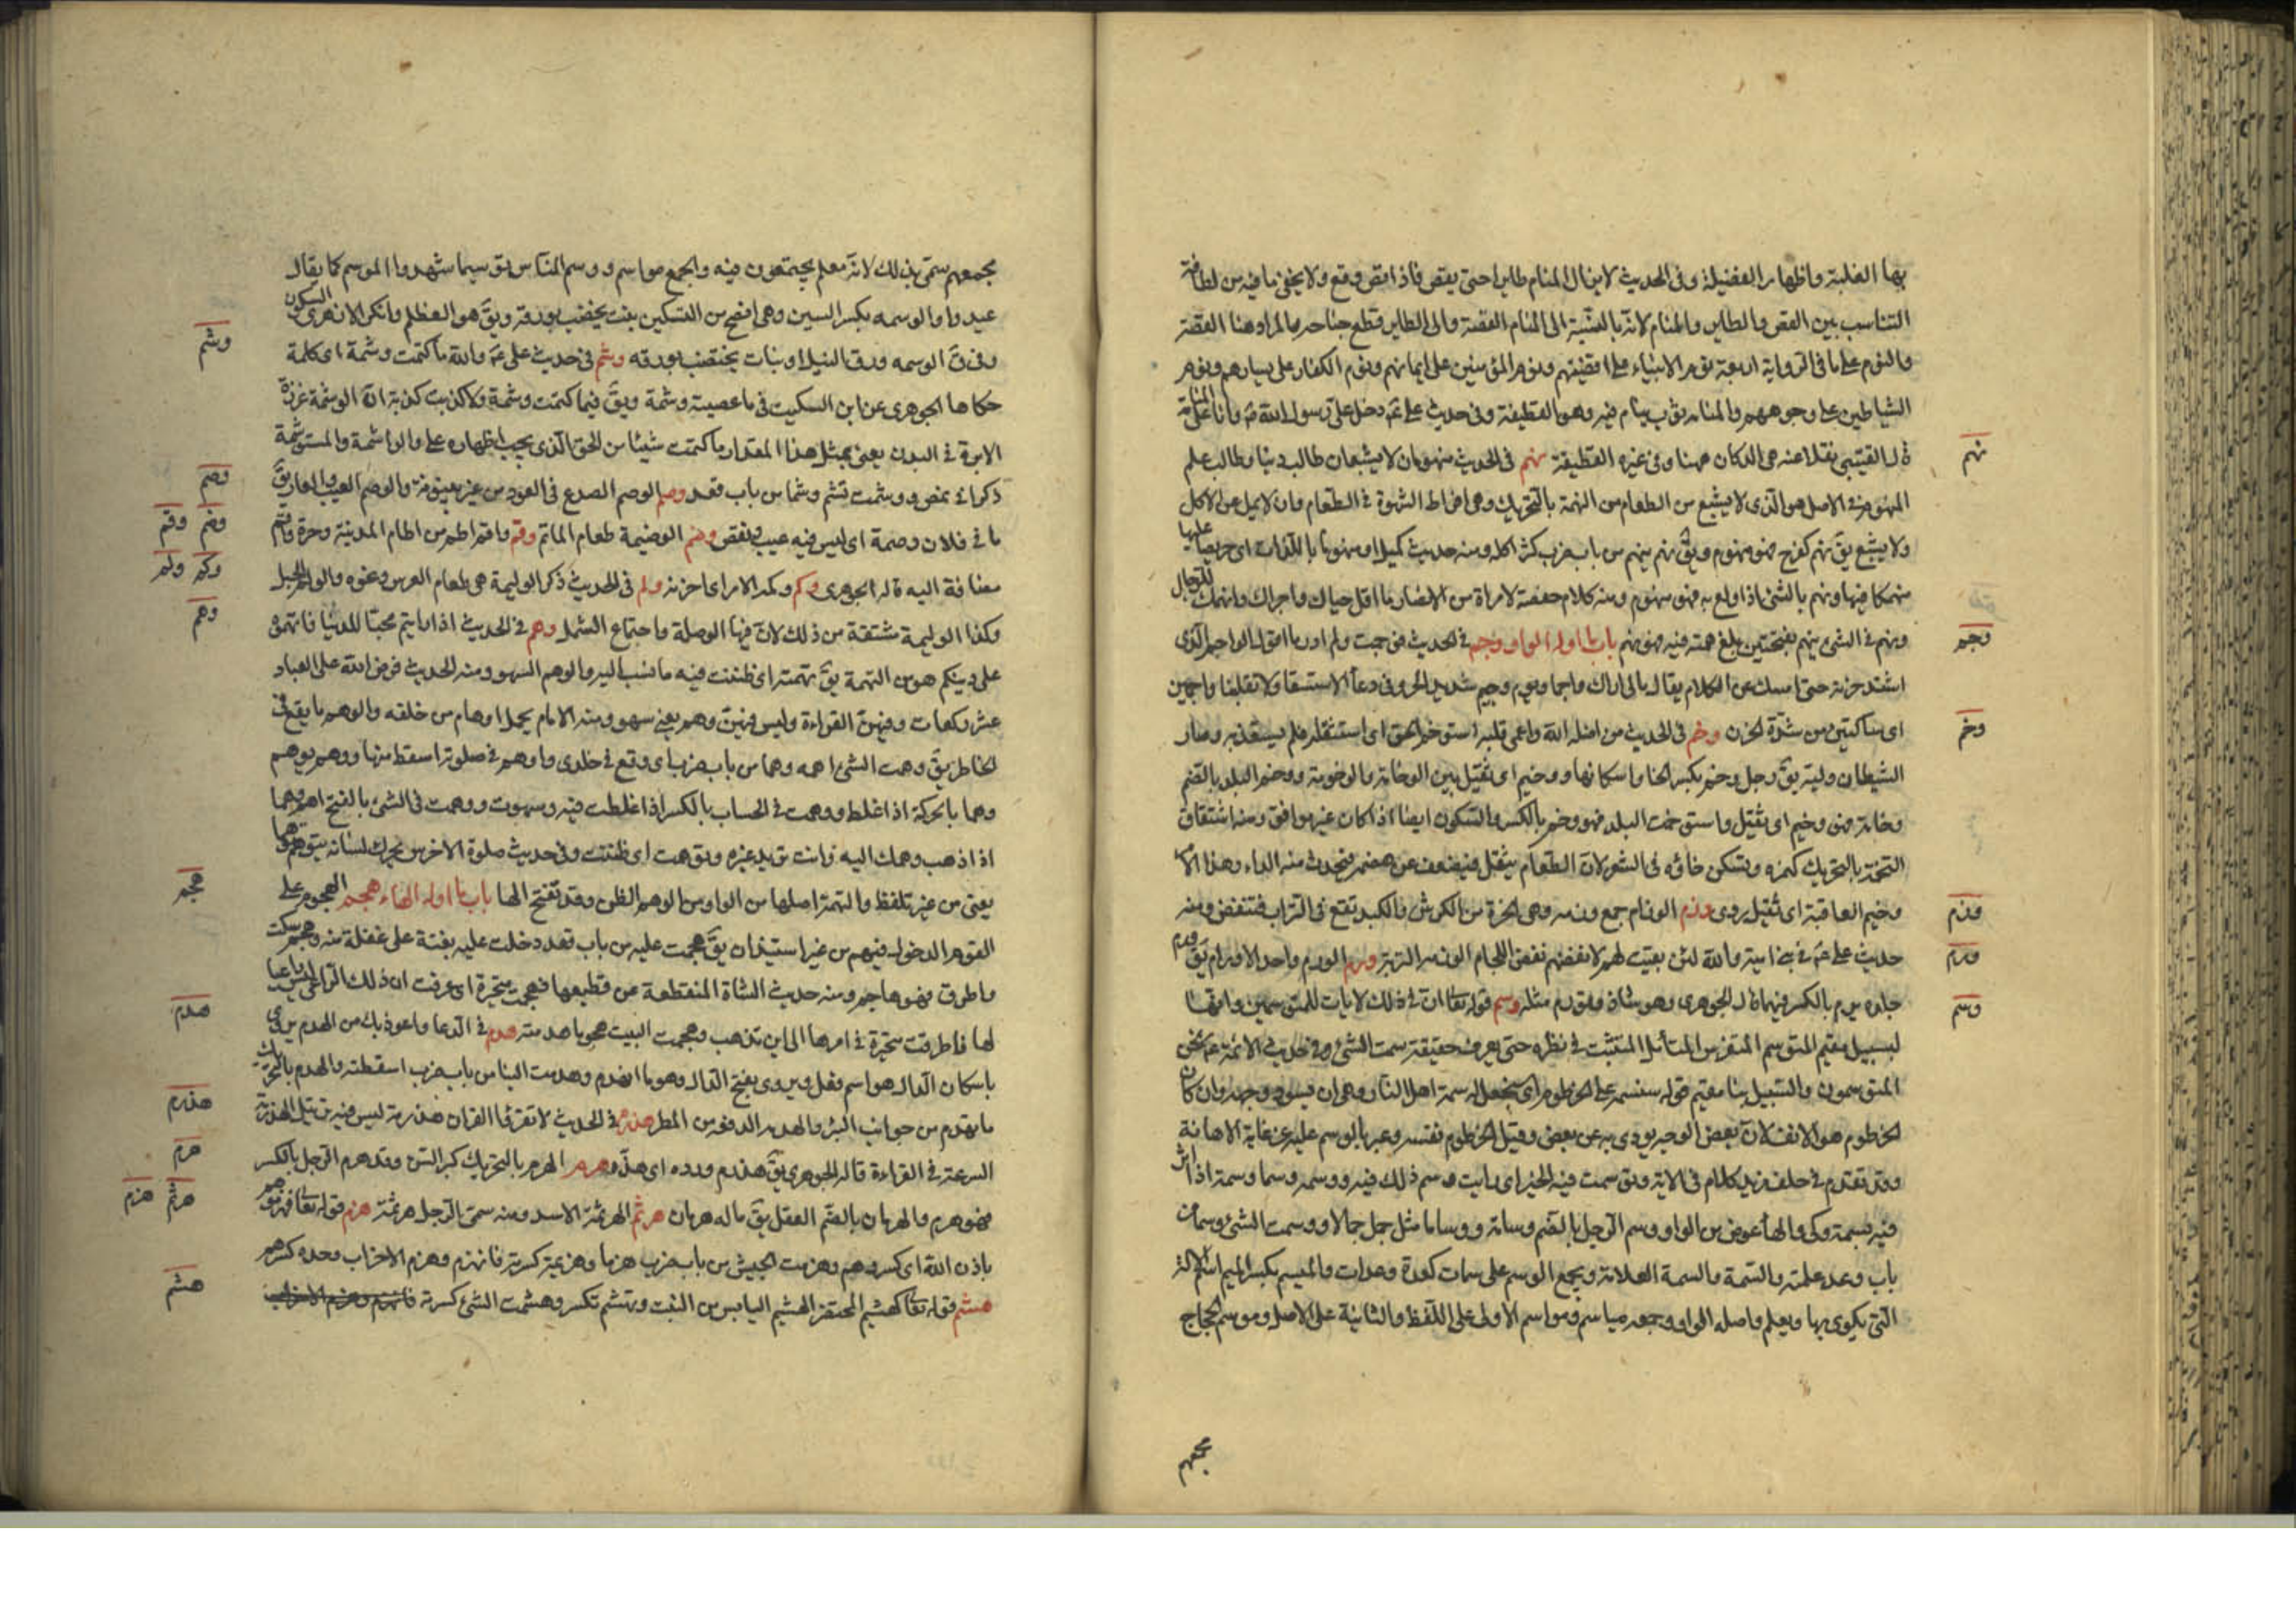 بها الغلبة واظهار الفضيلة وفى الحديث لاينال المنام طاير احتى يقص فاذا قص وقع ولا يخفى مافيه من لطافة
التناسب بين القص والطاير والمنام لانه بالنسبة الى المنام القصة والى الطاير قطع جناحه والمراد هنا القصة
والنوم على ما فى الرواية اربعة نوم الانبياء على اقفيتهم ونوم المؤمنين على ايمانهم ونوم الكفار على يسارهم ونوم
الشياطين على وجوههم والمنامة ثوب ينام فيه وهو القطيفة وفى حديث على ع دخل على رسول الله ص وانا على المنامة
قال القتيبى نقلا عنه هى الدكان ههنا وفى غيره القطيفة نهم فى الحديث منهومان لا يشبعان طالب دنيا وطالب علم
نهم
المنهوم فى الاصل هو الذى لا يشبع من الطعام من النهمة بالتحريك وهى افراط الشهوة فى الطعام وان لا يمل عن الاكل
ولا يشبع يق نهم كفرح فهو منهوم ويق نهم ينهم من باب ضرب كثر اكله ومنه حديث كميل او منهوما باللذات اى حريصا عليها
منهمكا فيها ونهم بالشئ اذا اولع به فهو منهوم ومنه كلام حفصة لامراة من الانصار ما اقل حياك واجراك وانهمك للرجال
ونهم فى الشئ ينهم بفتحتين بلغ همته فيه فهو نهم باب ما اوله الواو وجم فى الحديث فوجمت ولم ادر ما اقول الواجم الذى
وجم
اشتد حزنه حتى امسك عن الكلام يقال مالى اراك واجما ويوم وجيم شديد الحر وفى دعاء الاستسقا ولا تقلبنا واجمين
اى ساكتين من شدة الحزن وخم فى الحديث من اضله الله واعمى قلبه استوخم الحق اى استثقله فلم يستعذبه وصار
وخم
الشيطان وليه يق رجل وخم بكسر الخا واسكانها ووخيم اى ثقيل بين الوخامة والوخومة ووخم البلد بالضم
وخامة فهو وخيم اى ثقيل واستوخمت البلد فهو وخم بالكسر والسكون ايضا اذا كان غير موافق ومنه اشتقاق
التخمة بالتحريك كهمزه وتسكن خاؤه فى الشعر لان الطعام يثقل فيضعف عن هضمه فيحدث منه الداء وهذا الامر
وخيم العاقبة اى ثقيل ردى وذم الوذام جمع وذمه وهى الحزة من الكرش والكبد تقع فى التراب فتنفض ومنه
وذم
حديث على ع فى بنى امية والله لئن بقيت لهم لانفضنهم نفض اللحام الوذمه التربة ورم الورم واحد الاورام يق ورم
ورم
جلده يرم بالكسر فيهما قال الجوهرى وهو شاذ وتورم مثله وسم قوله تعالى ان فى ذلك لايات للمتوسمين وانها
وسم
لبسبيل مقيم المتوسم المتفرس المتأمل المتثبت فى نظره حتى يعرف حقيقة سمت الشئ وفى حديث الائمة ع نحن
المتوسمون والسبيل بنا مقيم قوله سنسمه على الخرطوم اى سنجعل له سمة اهل النار وهى ان يسود وجهه وان كان
الخرطوم هو الانف لان بعض الوجه يودى به عن بعض وقيل الخرطوم نفسه وعبر بالوسم عليه عن غاية الاهانة
وقد تقدم فى خلف مزيد كلام فى الاية وتوسمت فيه الخير اى رايت وسم ذلك فيه ووسمه وسما وسمة اذا اثر
فيه بسمة وكى والهاء عوض من الواو ووسم الرجل بالضم وسامة ووساما مثل جمل جمالا ووسمت الشئ وسما من
باب وعد علمته والسمة والسمة العلامة ويجمع الوسم على سمات كعدة وعدات والميسم بكسر الميم اسم الالة
التى يكوى بها ويعلم واصله الواو وجمعه مياسم ومواسم الاولى على اللفظ والثانية على الاصل وموسم الحجاج
مجمعهم
مجمعهم سمى بذلك لانه معلم يجتمعون فيه والجمع مواسم ووسم الناس توسيما شهدوا الموسم كما يقال
عيدوا والوسمه بكسر السين وهى افصح من التسكين نبت يختضب بورقه ويق هو العظلم وانكر الازهرى السكون
وفى ق الوسمه ورق النيل او نبات يختضب بورقه وشم فى حديث على ع والله ما كتمت وشمة اى كلمة
وشم
حكاها الجوهرى عن ابن السكيت فى ما عصيته وشمة ويق فيما كتمت وشمة ولا كذبت كذبة ان الوشمة غرزة
الابرة فى البدن يعنى بمثل هذا المقدار ما كتمت شيئا من الحق الذى يجب اظهاره على والواشمة والمستوشمة
ذكرا فى نمص ووشمت تشم وشما من باب قعد وصم الوصم الصدع فى العود من غير بينونة والوصم العيب والعار يق
وصم
ما فى فلان وصمة اى ليس فيه عيب ونقص وضم الوضيمة طعام الماتم وقم واقم اطم من اطام المدينة وحرة واقم
وضم وقم
مضافة اليه قاله الجوهرى وكم وكمه الامر اى احزنه ولم فى الحديث ذكر الوليمة هى طعام العرس ونحوه والولم الحبل
وكم ولم
وكذا الوليمة مشتقة من ذلك لان فيها الوصلة واجتماع الشمل وهم فى الحديث اذا رايتم محبا للدنيا فاتهموه
وهم
على دينكم هو من التهمة يق تهمته اى ظننت فيه ما نسب اليه والوهم السهو ومنه الحديث فرض الله على العباد
عشر ركعات وفيهن القراءة وليس فيهن وهم يعنى سهو ومنه الامام يحمل اوهام من خلفه والوهم ما يقع فى
الخاطر يق وهمت الشئ اهمه وهما من باب ضرب اى وقع فى خلدى واوهم فى صلوته اسقط منها ووهم يوهم
وهما بالحركة اذا غلط ووهمت فى الحساب بالكسر اذا غلطت فيه وسهوت ووهمت فى الشئ بالفتح اهم وهما
اذا ذهب وهمك اليه وانت تريد غيره وتوهمت اى ظننت وفى حديث صلوة الاخرس يحرك لسانه يتوهم توهما
يعنى من غير تلفظ والتهمة اصلها من الواو من الوهم الظن وقد تفتح الها باب ما اوله الهاء هجم الهجوم على
هجم
القوم الدخول فيهم من غير استيذان يق هجمت عليه من باب قعد دخلت عليه بغتة على غفلة منه وهجم سكت
واطرق فهو هاجم ومنه حديث الشاة المنقطعة عن قطيعها فهجمت متحيرة اى عرفت ان ذلك الراعى ليس راعيا
لها فاطرقت متحيرة فى امرها الى اين تذهب وهجمت البيت هجوما هدمته هدم فى الدعا واعوذ بك من الهدم يروى
هدم
باسكان الدال هو اسم فعل ويروى بفتح الدال وهو ما انهدم وهدمت البنا من باب ضرب اسقطته والهدم بالتحريك
ما تهدم من جوانب البئر والهدمه الدفعه من المطر هذرم فى الحديث لا تقرؤا القران هذرمة ليس فيه ترتيل الهذرمة
هذرم
السرعة فى القراءة قاله الجوهرى يق هذرم ورده اى هذه هرم الهرم بالتحريك كبر السن وقد هرم الرجل بالكسر
هرم
فهو هرم والهرمان بالضم العقل يق ماله هرمان هرثم الهرثمة الاسد ومنه سمى الرجل هرثمة هزم قوله تعالى فهزموهم
هرثم هزم
باذن الله اى كسروهم وهزمت الجيش من باب ضرب هزما وهزيمة كسرته فانهزم وهزم الاحزاب وحده كسرهم
هشم قوله تعالى كهشيم المحتظر الهشيم اليابس من النبت وتهشم تكسر وهشمت الشئ كسرته
هشم